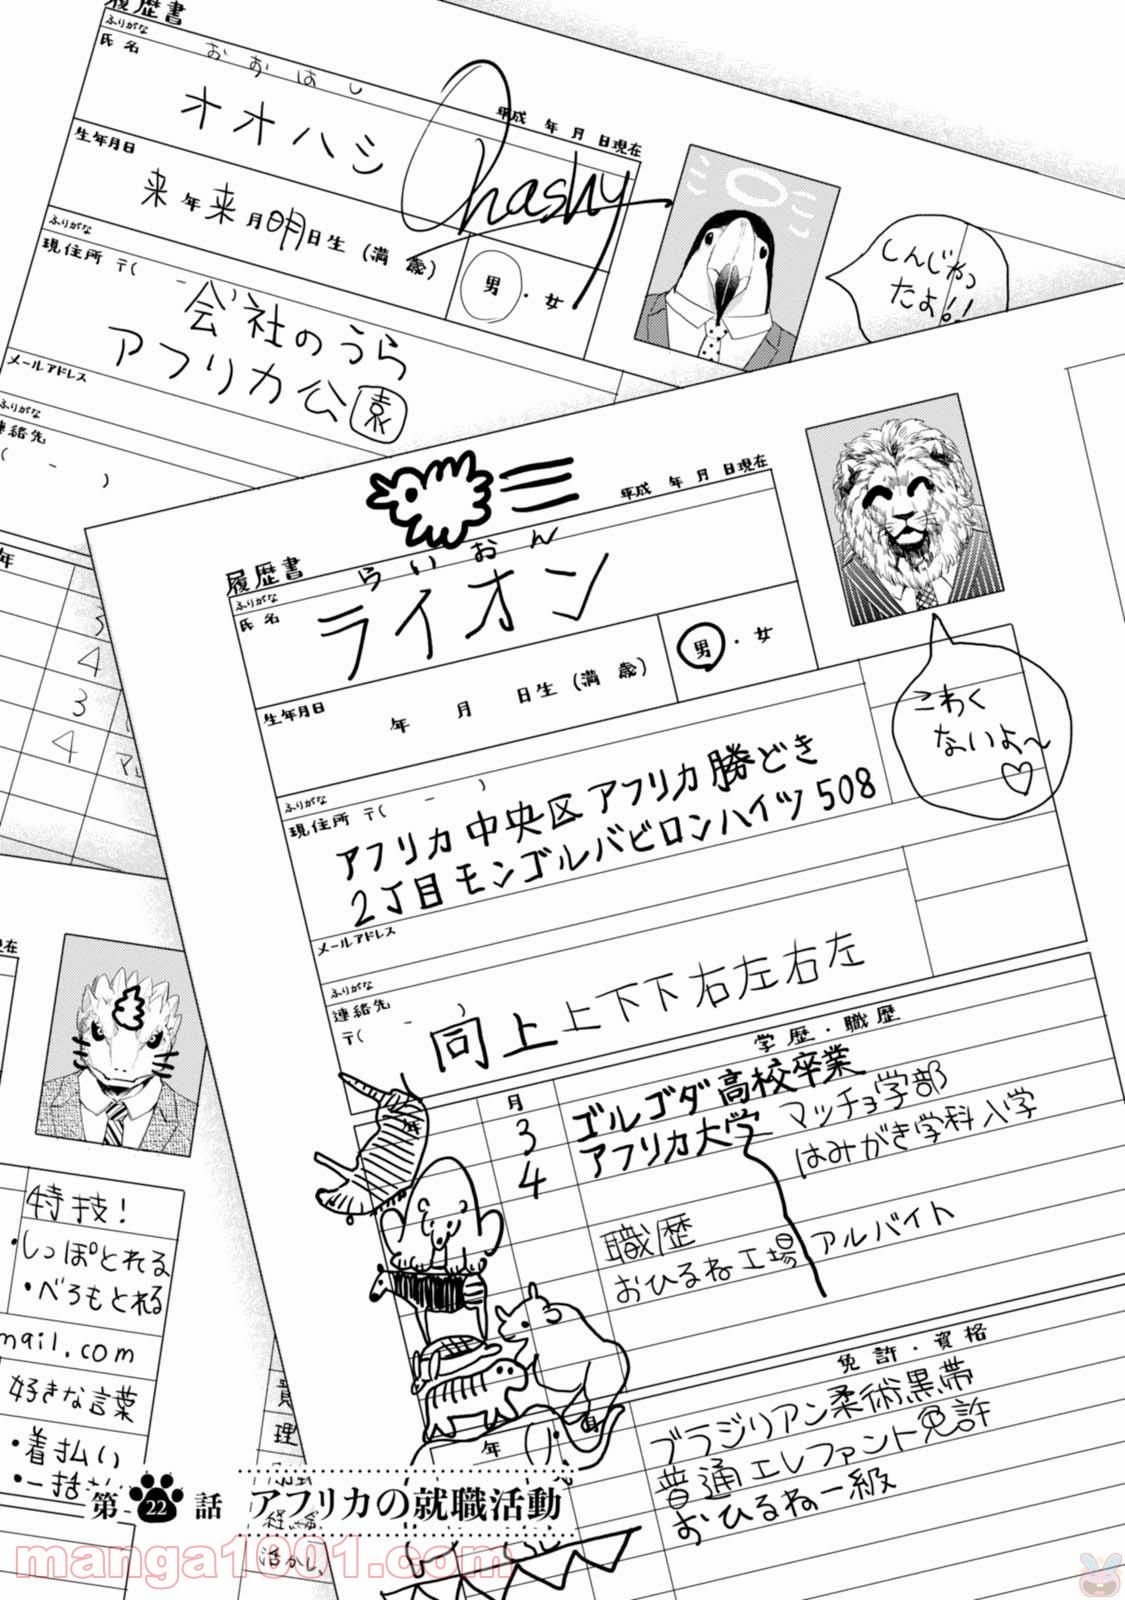 履歴書
ふりがな
おおはし
氏名
オオハシ
Ohashy
平成 年 月 日現在
生年月日
来年来月明日生(満 歳)
男・女
しんじゃっ
たよ!!
ふりがな
現住所 〒( - )
会社のうら
アフリカ公園
メールアドレス
ふりがな
連絡先
( - )
年
3
4
3
4
履歴書
平成 年 月 日現在
ふりがな
らいおん
氏名
ライオン
生年月日
年 月 日生(満 歳)
男・女
こわく
ないよ〜
♡
ふりがな
現住所 〒( - )
アフリカ中央区アフリカ勝どき
2丁目モンゴルバビロンハイツ508
メールアドレス
ふりがな
連絡先
〒( - )
同上上下下右左右左
学歴・職歴
月
3 ゴルゴダ高校卒業
4 アフリカ大学 マッチョ学部
はみがき学科入学
職歴
おひるね工場アルバイト
年
月
免許・資格
ブラジリアン柔術黒帯
普通エレファント免許
おひるね一級
現在
特技!
・しっぽとれる
・べろもとれる
mail.com
好きな言葉
・着払い
・一括
理
活かし、
第22話 アフリカの就職活動
manga1001.com